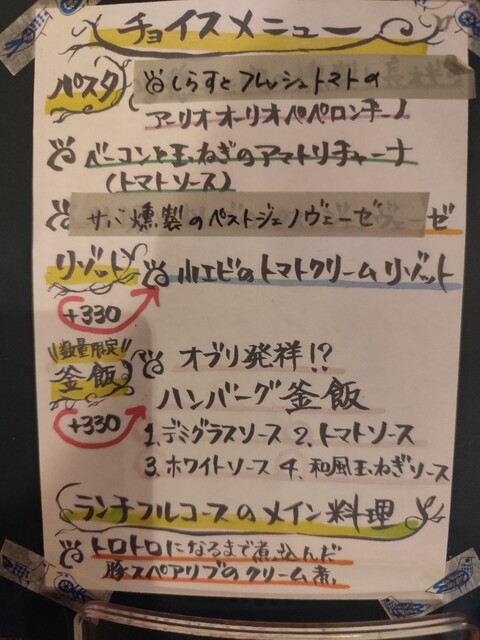 チョイスメニュー
パスタ
しらすとフレッシュトマトの
アーリオオーリオペペロンチーノ
ベーコンと玉ねぎのアマトリチャーナ
(トマトソース)
サバ燻製のペストジェノヴェーゼ
リゾット 小エビのトマトクリームリゾット
+330
数量限定
釜飯
オブリ発祥!?
ハンバーグ釜飯
+330
1. デミグラスソース 2. トマトソース
3. ホワイトソース 4. 和風玉ねぎソース
ランチフルコースのメイン料理
トロトロになるまで煮込んだ
豚スペアリブのクリーム煮